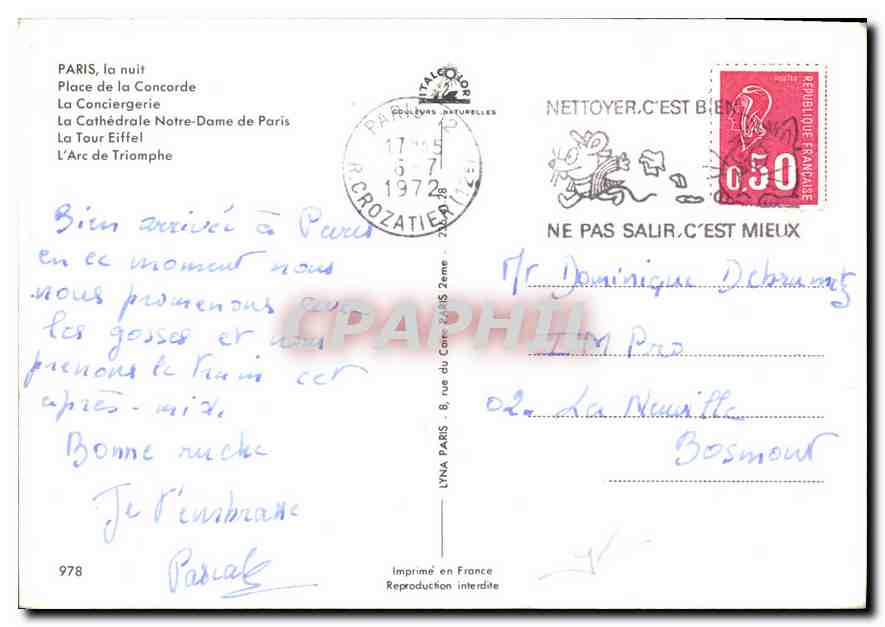 PARIS, la nuit
Place de la Concorde
La Conciergerie
La Cathédrale Notre-Dame de Paris
La Tour Eiffel
L'Arc de Triomphe
ITALCOLOR
COULEURS NATURELLES
PARIS 12
6-7
1972
R.CROZATIER (12E)
NETTOYER.C'EST BIEN
NE PAS SALIR.C'EST MIEUX
POSTES
REPUBLIQUE FRANCAISE
0,50
Bien arrivée à Paris
en ce moment nous
nous promenons avec
les gosses et nous
prenons le train cet
après-midi.
Bonne
Je t'embrasse
Pascal
LYNA PARIS - 8, rue du Caire PARIS 2ème -
Mr Dominique
IM Pro
02. La Neuville
Bosmont
CPAPHIL
978
Imprimé en France
Reproduction interdite